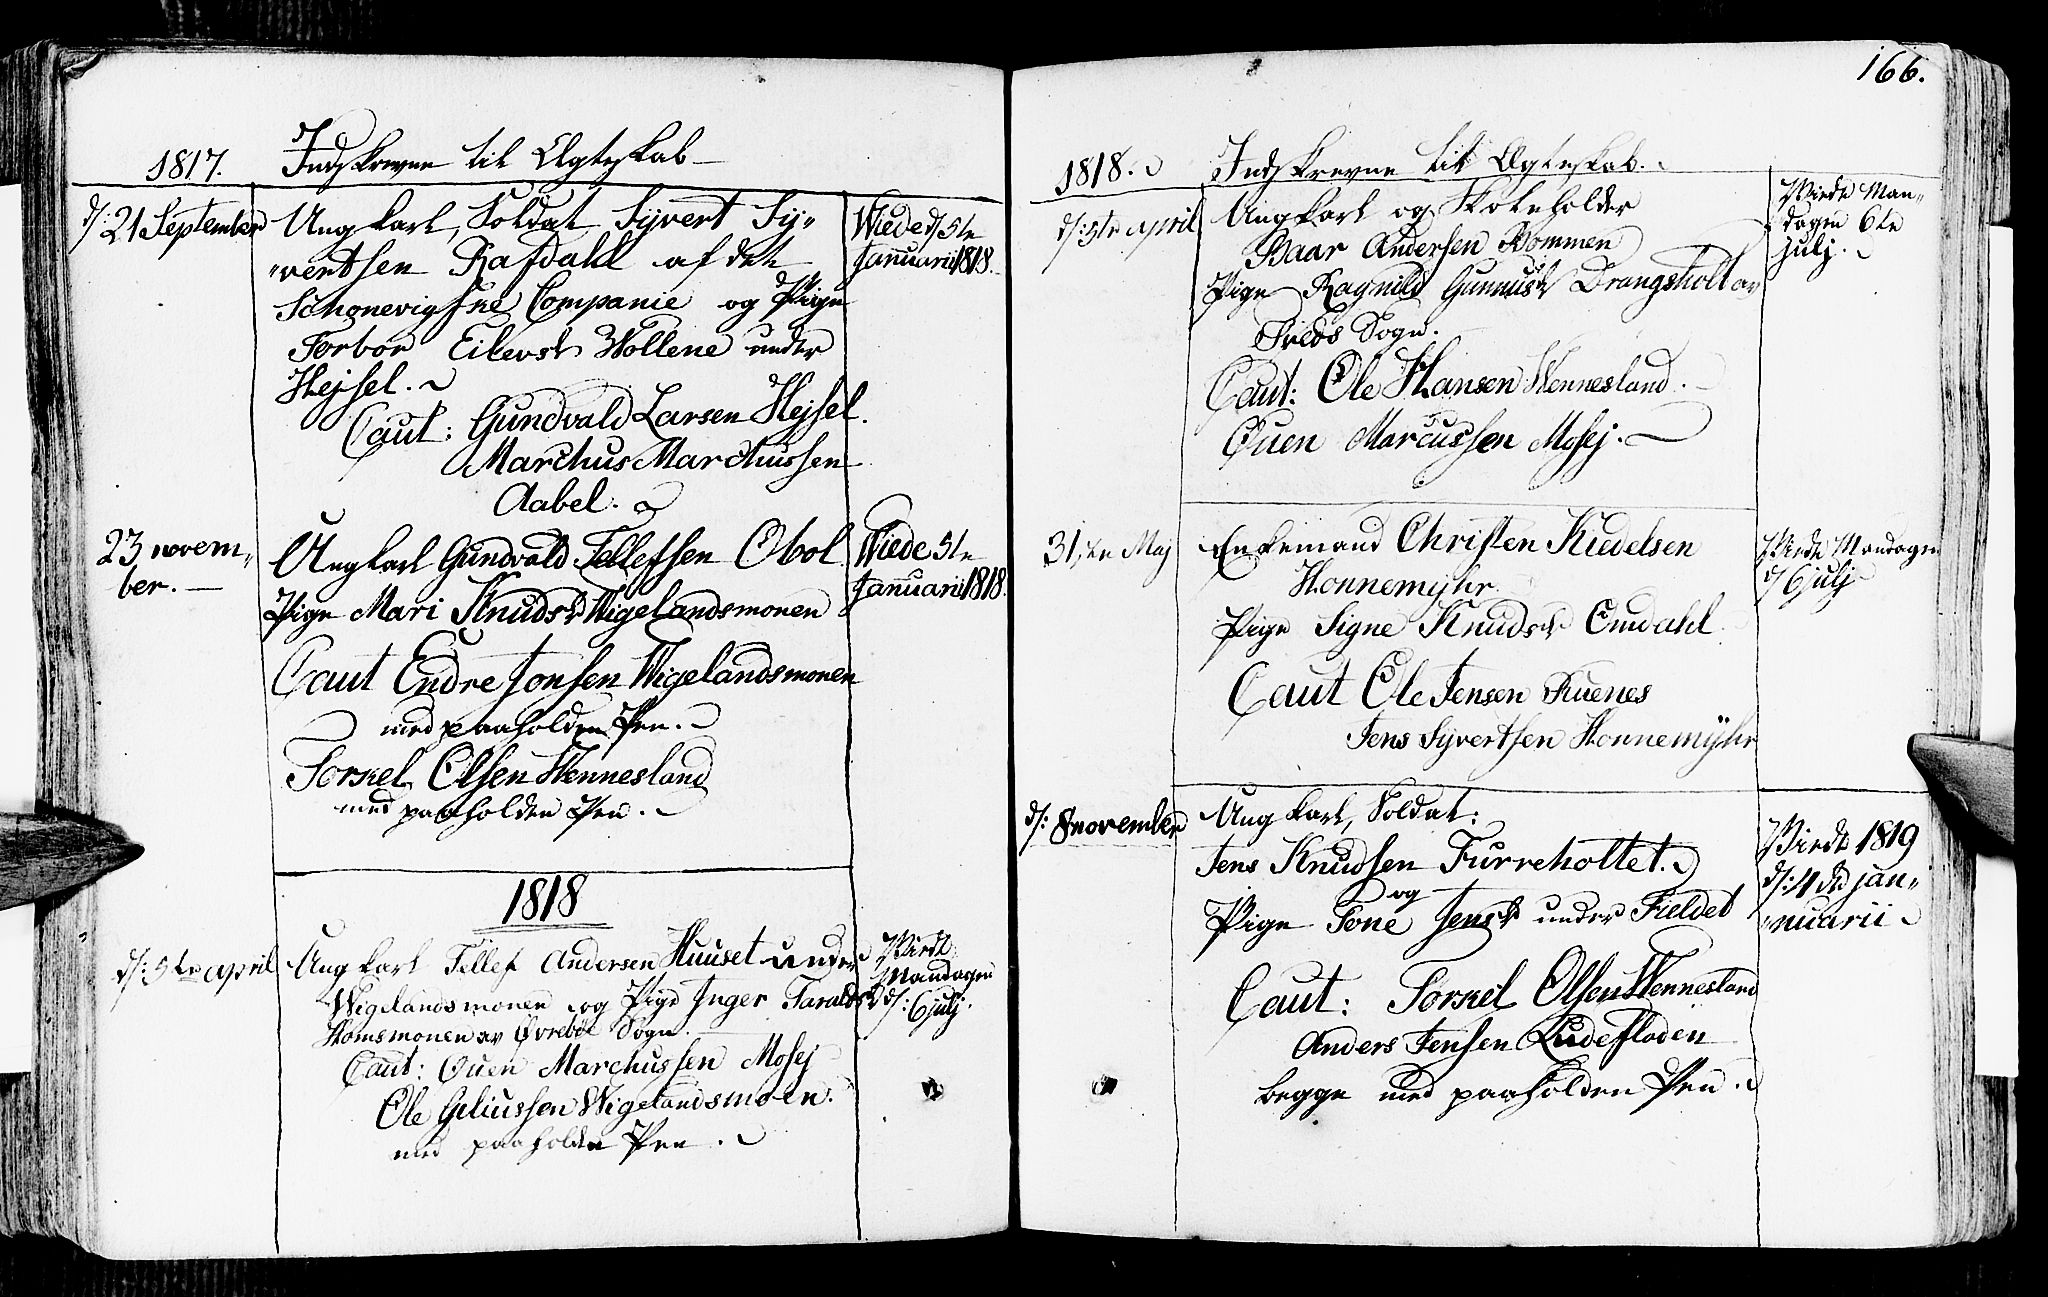 1817. Indskrevne til Ægteskab
d/: 21 September
Ungkarl, Soldat Syvert Sy„
„vertsen Rafdahl af det
Schonevigske Companie og Pige
Torbor Eilevsd Wollene under
Hejsel.
Caut: Gundvald Larsen Hejsel.
Marchus Marchussen
Aabel.
Wiede d/ 5te
Januarii 1818.
23 novem„
ber.
Ungkarl Gundvald Tellefsen Obol
Pige Mari Knudsd Wigelandsmonen
Caut Endre Jonsen Wigelandsmonen
med paaholden Pen.
Torkel Olsen Wennesland
med paaholden Pen.
Wiede 5te
Januarii 1818.
1818
d/: 5te april
Ungkarl Tellef Andersen Huuset under
Wigelandsmonen og Pige Inger Taraldsd
Homsmonen av Øvrebøe Sogn.
Caut: Ouen Marchussen Mosej
Ole Geliussen Wigelandsmoen.
med paaholden Pen.
Viedt
Mandagen
d/: 6 julj.
166.
1818. Indskrevne til Ægteskab.
d/: 5te april
Ungkarl og Skoleholder
Baar Andersen Kommen
Pige Ragnild Gunnusd Drangsholt av
Treds Sogn.
Caut: Ole Hansen Wennesland.
Ouen Marcussen Mosej.
Viedt Man„
dagen 6te
julj.
31,te Maj
Enkemand Christen Kiedelsen
Honnemyhr
Pige Signe Knudsd Omdahl
Caut Ole Jensen Kuenes
Jens Syvertsen Honnemÿhr
Viedt Mandagen
d/ 6 julj
d/: 8 november
Ungkarl, Soldat:
Jens Knudsen Furreholtet.
og
Pige Tone Jensd under Fieldet
Caut: Torkel Olsen Wennesland
Anders Jensen Ludeflaaden
begge med paaholden Pen.
Viedt 1819
d/: 4de jan„
„nuarii